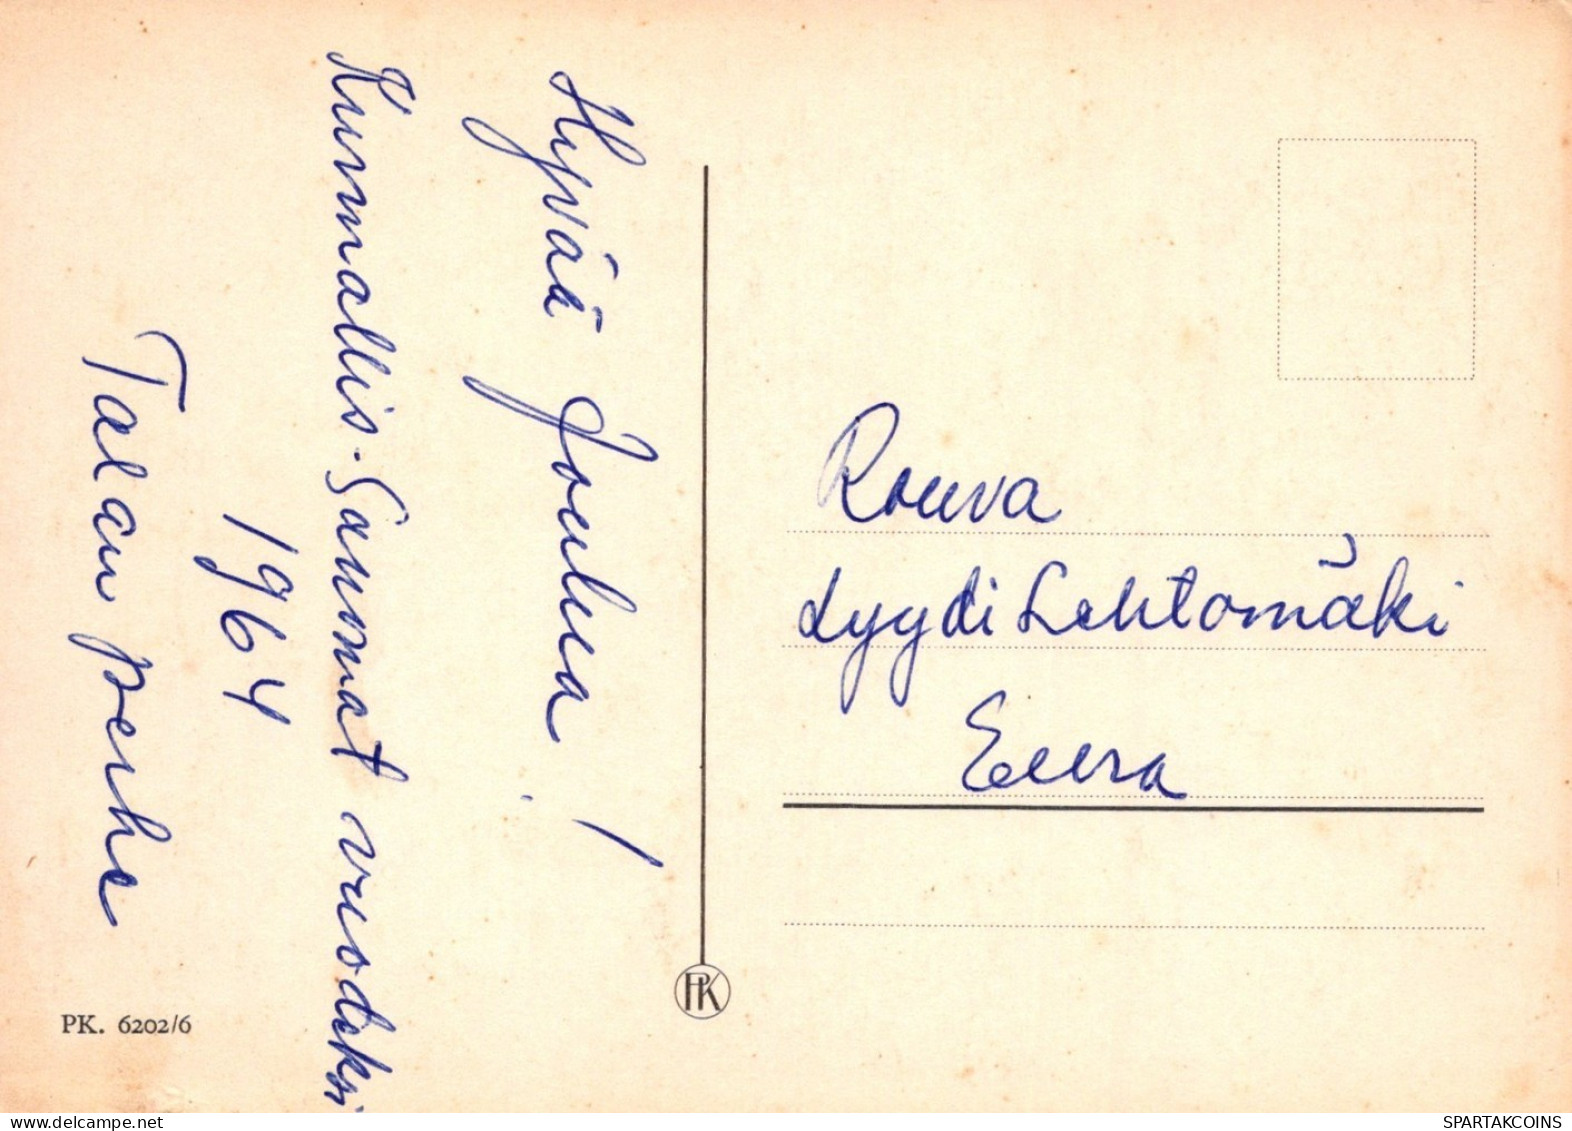 Hyvää Joulua!
Kunnallis-Saunnat vuodeksi
1964
Talan perhe
Rouva
Lyydi Lehtomäki
Eura
PK
PK. 6202/6
delcampe.net
SPARTAKCOINS